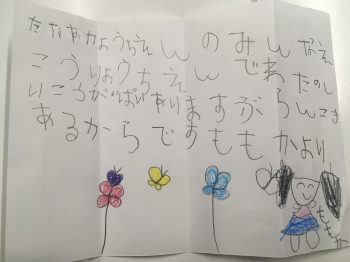 たなあかようちえんのみんなえ
こうりょうちえんでわたのし
いことがいぱいあリますぶらんこも
あるからですももかより
ももか